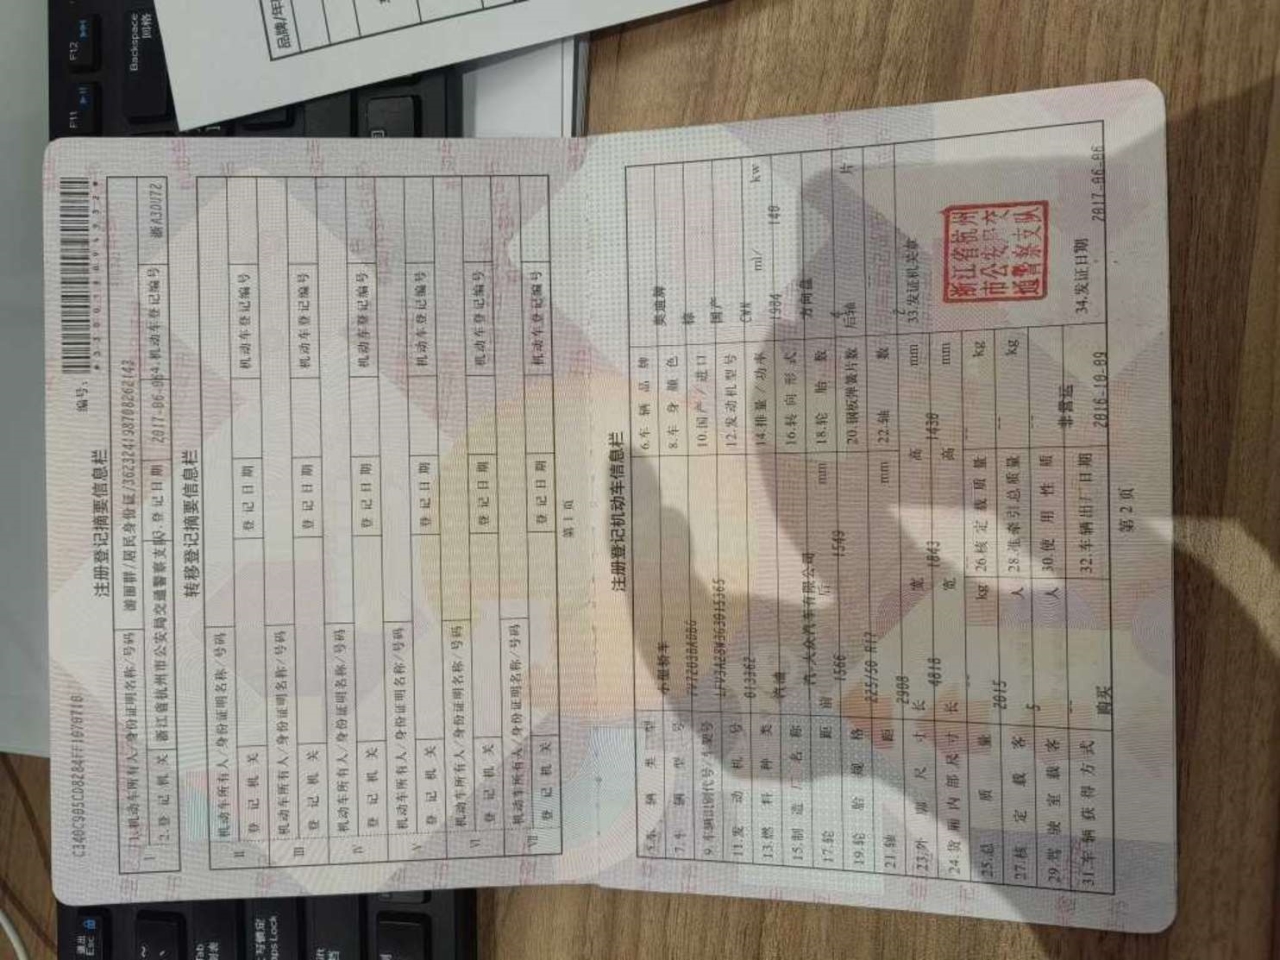 C340C905CD8284FF1070710
编号:
注册登记摘要信息栏
I 1.机动车所有人/身份证明名称/号码 居民身份证/362324198708262143
2.登记机关 浙江省杭州市公安局交通警察支队 3.登记日期 2017-06-06 4.机动车登记编号 浙A3DU72
转移登记摘要信息栏
II 机动车所有人/身份证明名称/号码
登记机关 登记日期 机动车登记编号
III 机动车所有人/身份证明名称/号码
登记机关 登记日期 机动车登记编号
IV 机动车所有人/身份证明名称/号码
登记机关 登记日期 机动车登记编号
V 机动车所有人/身份证明名称/号码
登记机关 登记日期 机动车登记编号
VI 机动车所有人/身份证明名称/号码
登记机关 登记日期 机动车登记编号
VII 机动车所有人/身份证明名称/号码
登记机关 登记日期 机动车登记编号
第1页
注册登记机动车信息栏
5.车辆类型 小型轿车 6.车辆品牌 奥迪牌
7.车辆型号 8.车身颜色 棕
9.车辆识别代号/车架号 10.国产/进口 国产
11.发动机号 013362 12.发动机型号 CWN
13.燃料种类 汽油 14.排量/功率 1984 ml/ 140 kw
15.制造厂名称 一汽-大众汽车有限公司 16.转向形式 方向盘
17.轮距 前 1566 后 1549 mm 18.轮胎数 4
19.轮胎规格 225/50 R17 20.钢板弹簧片数 后轴 片
21.轴距 2908 mm 22.轴数 2
23.外廓尺寸 长 4818 宽 1843 高 1438 mm 33.发证机关章
24.货厢内部尺寸 长 宽 高 mm
25.总质量 2015 kg 26.核定载质量 -- kg
27.核定载客 5 人 28.准牵引总质量 -- kg
29.驾驶室载客 -- 人 30.使用性质 非营运
31.车辆获得方式 购买 32.车辆出厂日期 2016-10-09 34.发证日期 2017-06-06
浙江省杭州
市公安局交
通警察支队
第2页
品牌/年
F12
F11
Backspace
回格
退出
Esc
Tab